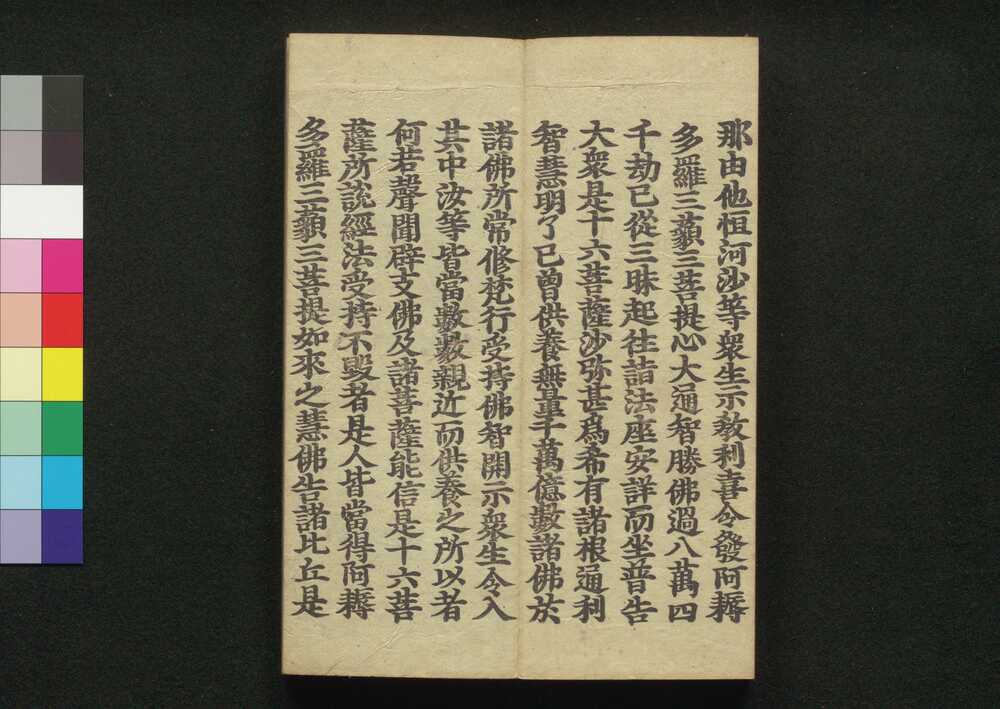 那由他恒河沙等衆生示教利喜令發阿耨
多羅三藐三菩提心大通智勝佛過八萬四
千劫已從三昧起往詣法座安詳而坐普告
大衆是十六菩薩沙弥甚爲希有諸根通利
智慧明了已曾供養無量千萬億數諸佛於
諸佛所常修梵行受持佛智開示衆生令入
其中汝等皆當數數親近而供養之所以者
何若聲聞辟支佛及諸菩薩能信是十六菩
薩所說經法受持不毀者是人皆當得阿耨
多羅三藐三菩提如來之慧佛告諸比丘是